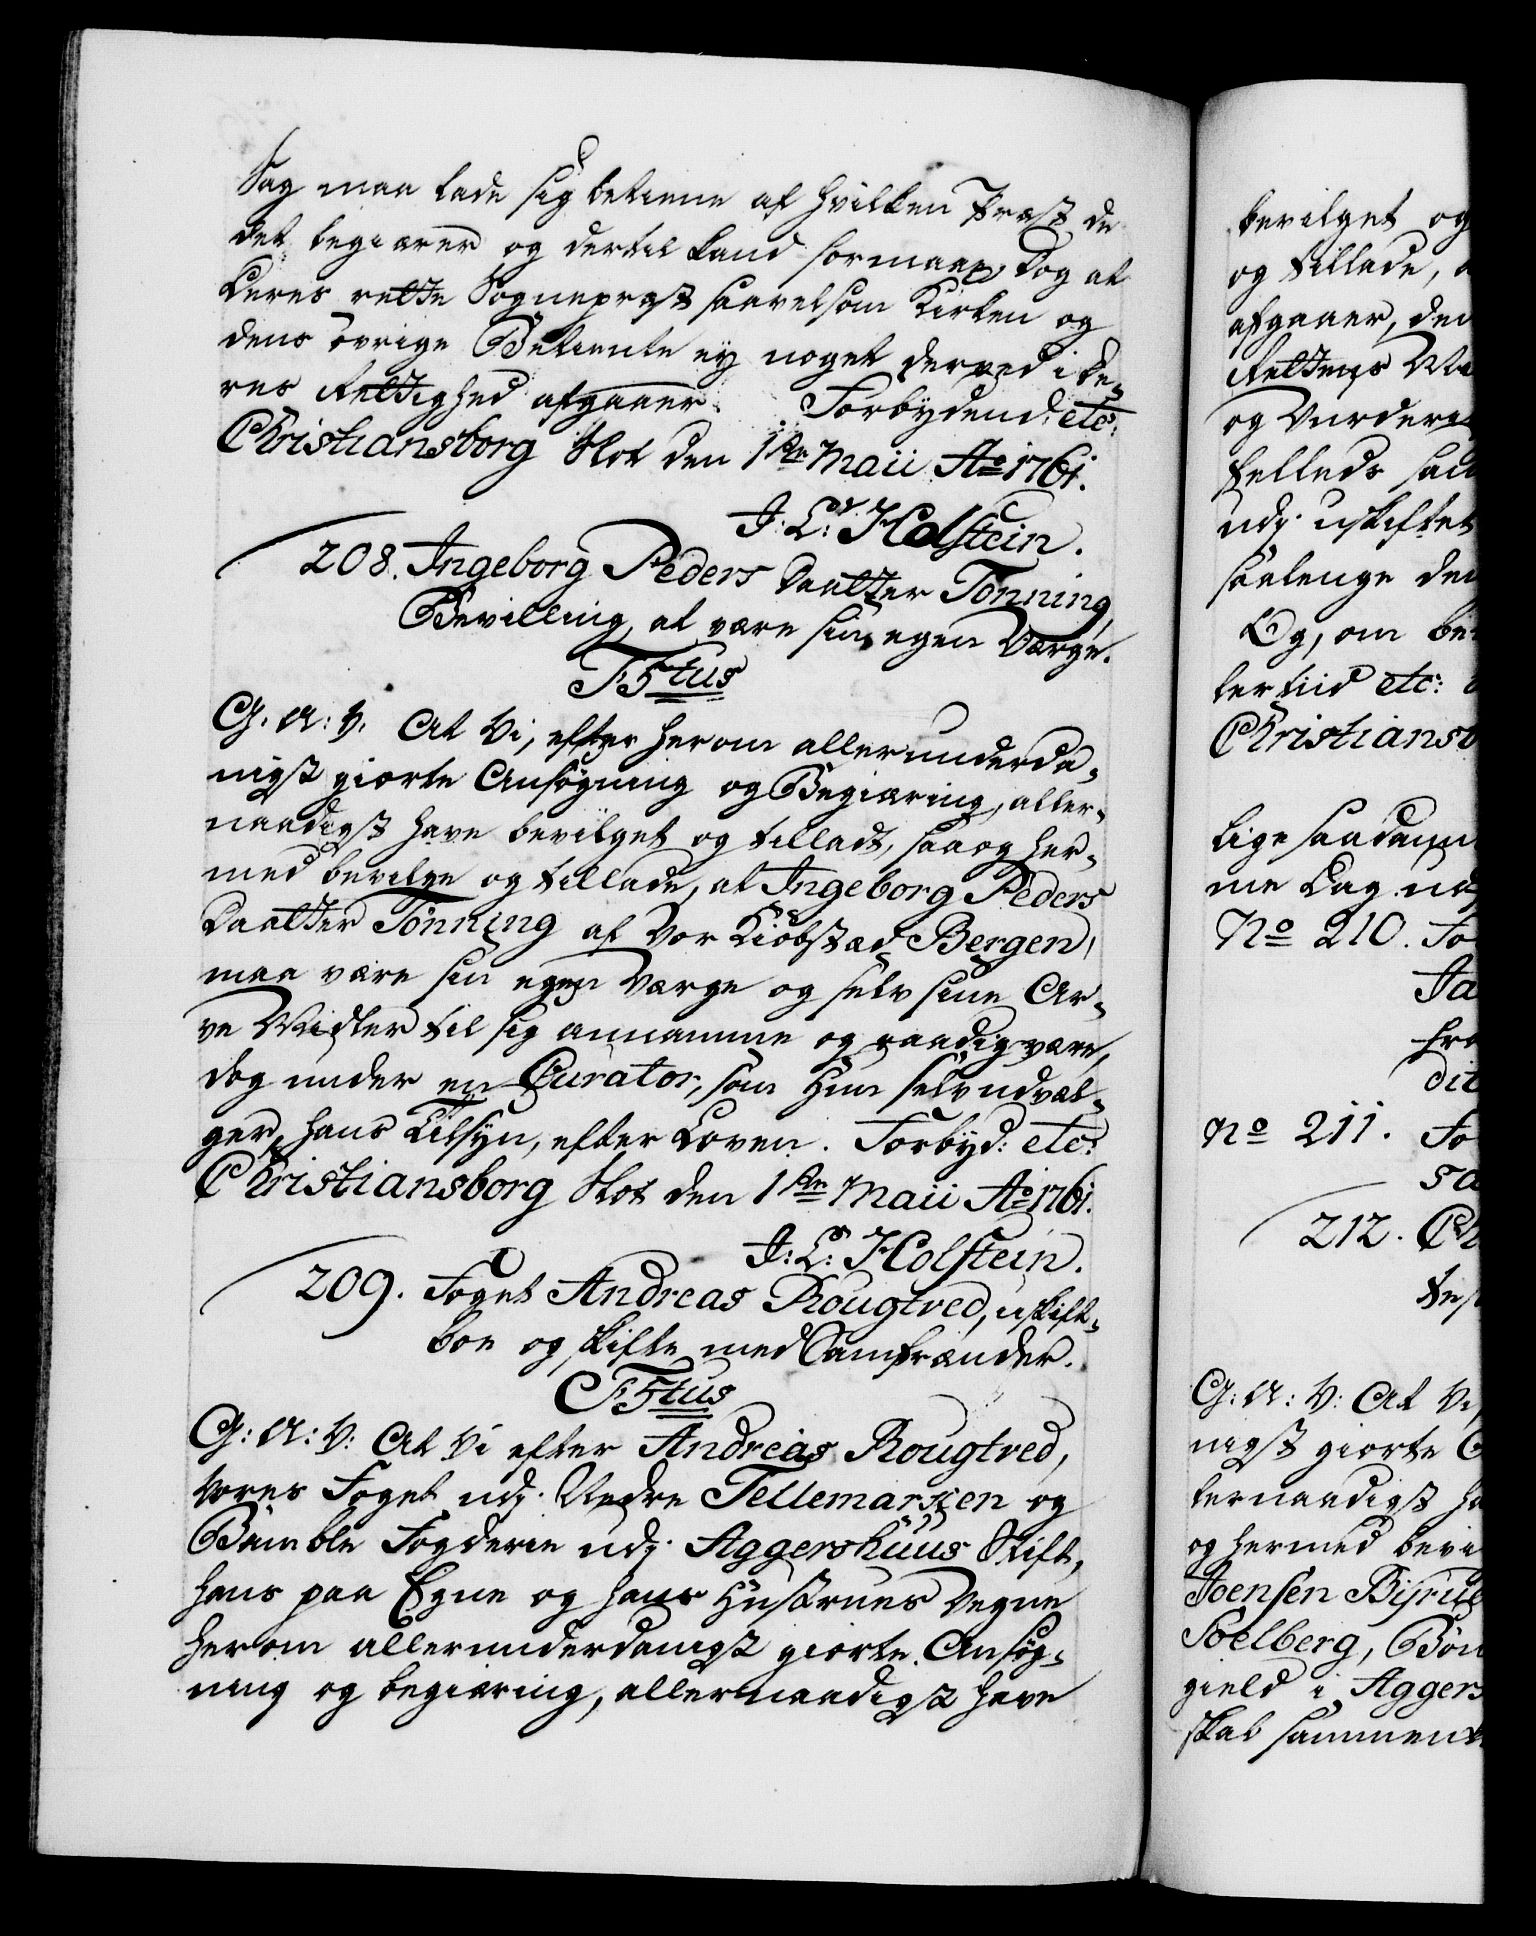 Sag maa lade sig betiene af hvilken Præst de
det begiærer og dertil kand formaae, dog at
deres rette Sognepræst saavelsom Kirken og
dens övrige Betiente ey noget derved i de-
res Rettighed afgaaer. Forbydend: etc:
Christiansborg Slot den 1ste Maii Ao 1761.
J: L: v. Holstein.
208. Ingeborg Peders Daatter Tönning,
Bevilling, at være sin egen Værge.
F5tus
G. A: V. At Vi, efter herom allerunderda-
nigst giorte Ansögning og Begiæring, aller-
naadigst have bevilget og tilladt, saa og her-
med bevilge og tillade, at Ingeborg Peders
Daatter Tönning af Vor Kiöbstæd Bergen,
maa være sin egen Værge og selv sine Ar-
ve Midler til sig annamme og raadig være,
dog under en Curator, som Hun selv udvæl-
ger, hans Tilsyn, efter Loven. Forbyd: etc:
Christiansborg Slot den 1ste Maii Ao 1761.
J: L: v. Holstein.
209. Foget Andreas Rougtved, uskift-
boe og skifte med Samfrænder.
F5tus
G: A: V: At Vi efter Andreas Rougtved,
Vores Foget udj Nedre Tellemarken og
Bamble Fogderie udj Aggershuus Stift,
hans paa Egne og hans Hustrues Vegne
herom allerunderdanigst giorte Ansög-
ning og begiæring, allernaadigst have
bevilget og
og tillade,
afgaaer, den
Rettens
og Vurdere
fælleds
udj uskiftet
saalenge den
Og, om
tertiid etc:
Christiansb
Lige saadann
me Dag
No 210. Fo
Ja
fra
dit
No 211. Fo
sa
212. Ch
G: A: V: At Vi
nigst giorte
lernaadigst ha
og hermed bevi
Joensen
Soelberg,
gield i Aggers
skab sammen